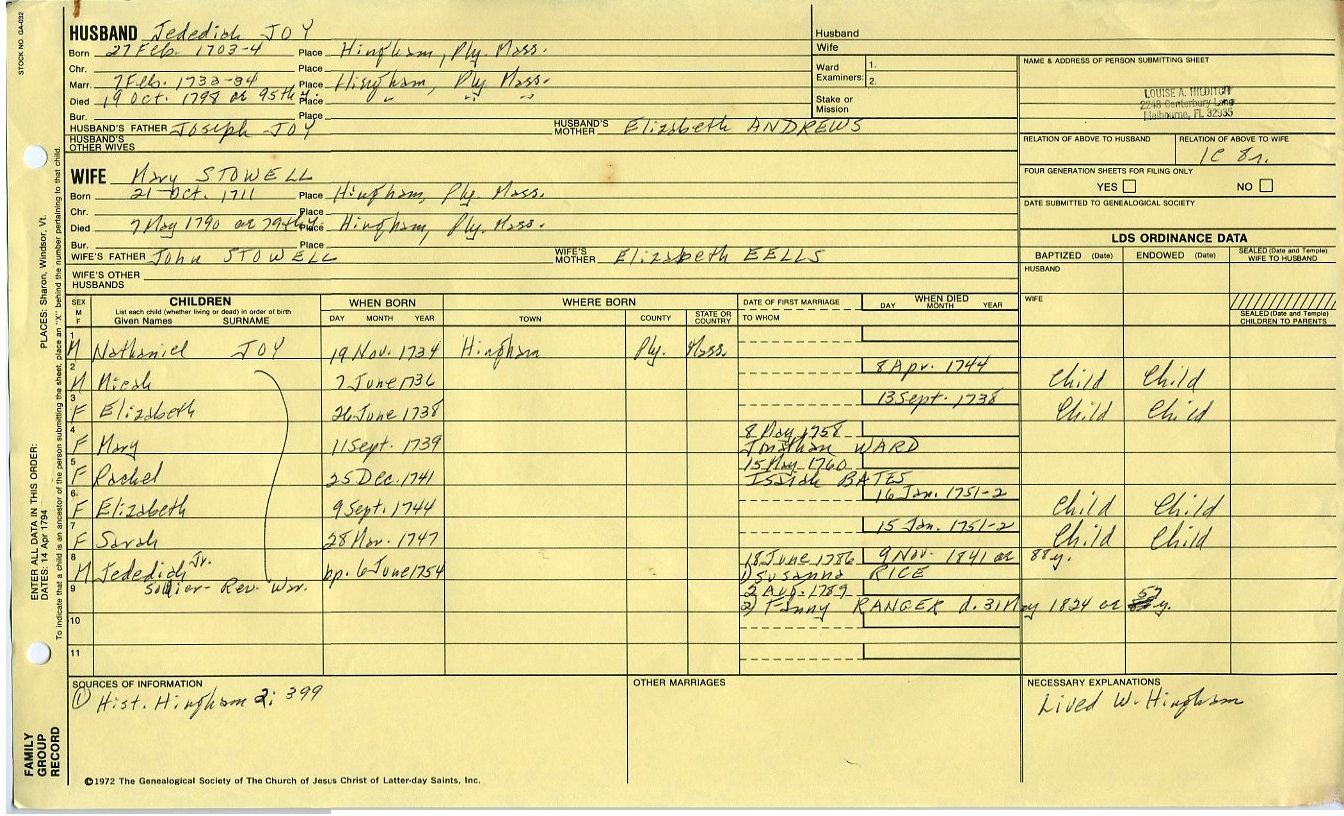 STOCK NO. GA-032
HUSBAND Jedediah JOY
Born 27 Feb. 1703-4 Place Hingham, Ply. Mass.
Chr. Place
Marr. 7 Feb. 1733-34 Place Hingham, Ply. Mass.
Died 19 Oct. 1798 or 95th y. Place " "
Bur. Place
HUSBAND'S FATHER Joseph JOY HUSBAND'S MOTHER Elizabeth ANDREWS
HUSBAND'S OTHER WIVES
Husband
Wife
Ward Examiners: 1. 2.
Stake or Mission
NAME & ADDRESS OF PERSON SUBMITTING SHEET
LOUISE A. HILDITCH
2248 Canterbury Lane
Melbourne, FL 32935
RELATION OF ABOVE TO HUSBAND RELATION OF ABOVE TO WIFE
1C 8r.
FOUR GENERATION SHEETS FOR FILING ONLY
YES NO
DATE SUBMITTED TO GENEALOGICAL SOCIETY
WIFE Mary STOWELL
Born 21 Oct. 1711 Place Hingham, Ply. Mass.
Chr. Place
Died 7 May 1790 or 79th y. Place Hingham, Ply. Mass.
Bur. Place
WIFE'S FATHER John STOWELL WIFE'S MOTHER Elizabeth EELLS
WIFE'S OTHER HUSBANDS
LDS ORDINANCE DATA
BAPTIZED (Date) ENDOWED (Date) SEALED (Date and Temple) WIFE TO HUSBAND
HUSBAND
WIFE
SEALED (Date and Temple) CHILDREN TO PARENTS
SEX M F CHILDREN WHEN BORN WHERE BORN DATE OF FIRST MARRIAGE WHEN DIED
List each child (whether living or dead) in order of birth
Given Names SURNAME DAY MONTH YEAR TOWN COUNTY STATE OR COUNTRY TO WHOM DAY MONTH YEAR
1 M Nathaniel JOY 19 Nov. 1734 Hingham Ply. Mass.
2 M Micah 7 June 1736 8 Apr. 1744 Child Child
3 F Elizabeth 26 June 1738 13 Sept. 1738 Child Child
4 F Mary 11 Sept. 1739 8 May 1758 Jonathan WARD
5 F Rachel 25 Dec. 1741 15 May 1760 Isaiah BATES
6 F Elizabeth 9 Sept. 1744 16 Jan. 1751-2 Child Child
7 F Sarah 28 Mar. 1747 15 Jan. 1751-2 Child Child
8 M Jedediah Jr. bp. 6 June 1754 18 June 1786 1) Susanna RICE 9 Nov. 1841 or 88 y.
9 Soldier - Rev. War. 2 Aug. 1789 2) Fanny RANGER d. 31 May 1824 or 57 y.
10
11
SOURCES OF INFORMATION
① Hist. Hingham 2: 399
OTHER MARRIAGES
NECESSARY EXPLANATIONS
Lived W. Hingham
©1972 The Genealogical Society of The Church of Jesus Christ of Latter-day Saints, Inc.
FAMILY GROUP RECORD
ENTER ALL DATA IN THIS ORDER:
DATES: 14 Apr 1794
PLACES: Sharon, Windsor, Vt.
To indicate that a child is an ancestor of the person submitting the sheet, place an "X" behind the number pertaining to that child.